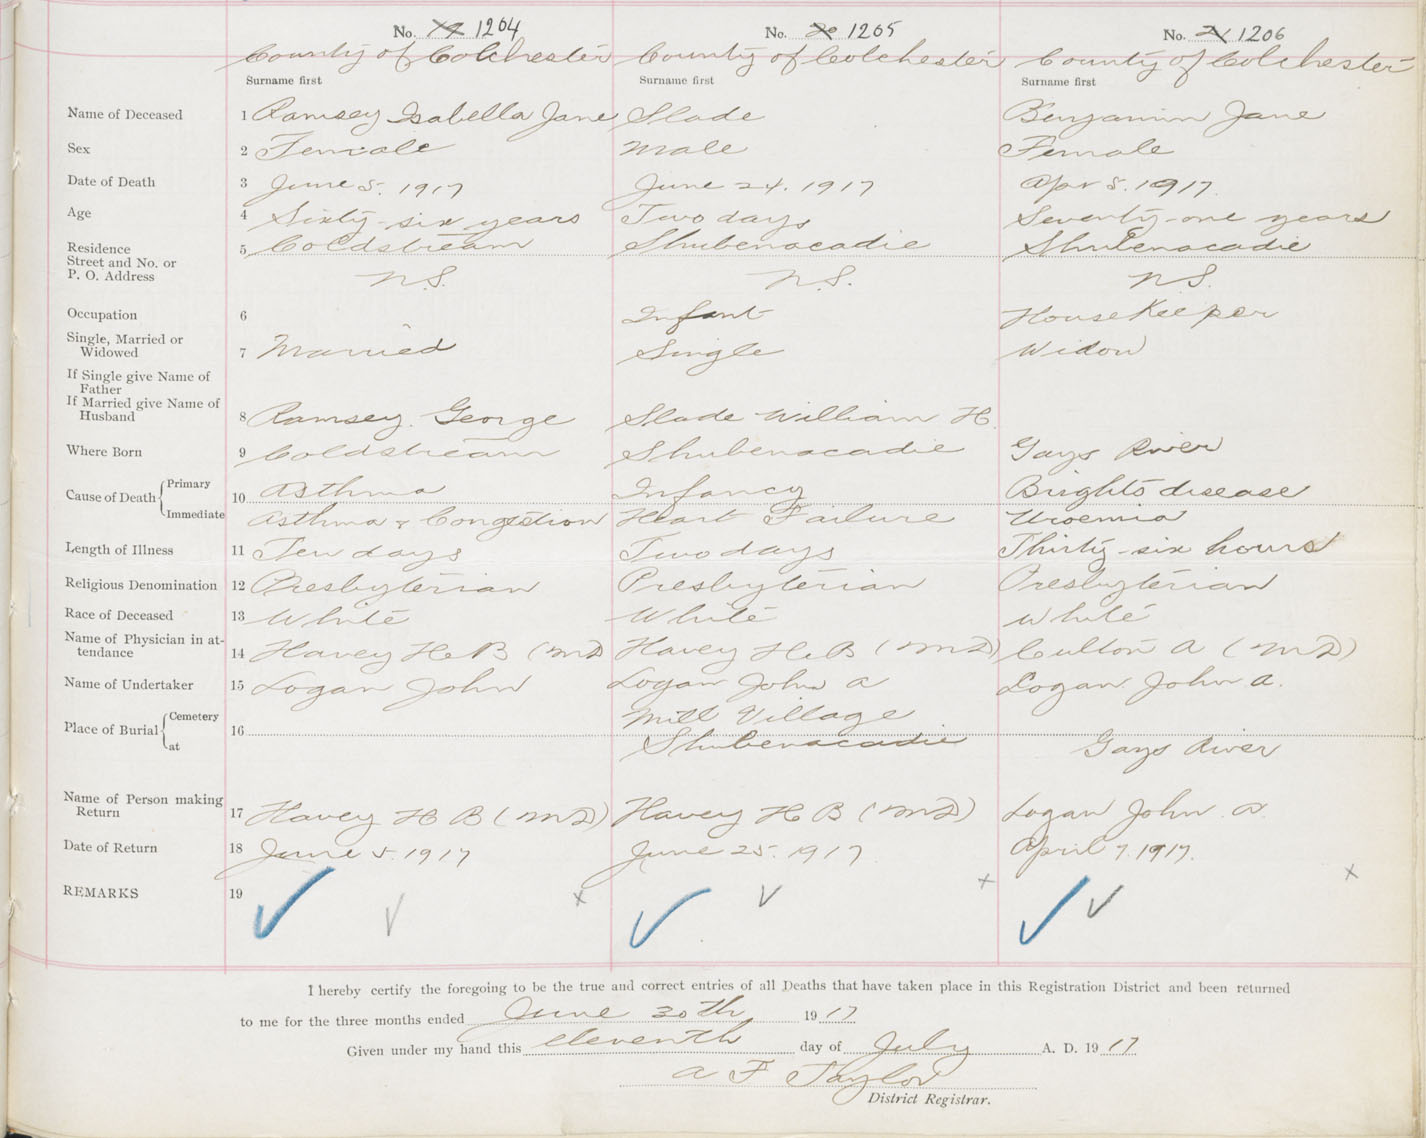 No. 1204 No. 1205 No. 1206
County of Colchester County of Colchester County of Colchester
Surname first Surname first Surname first
Name of Deceased 1 Ramsey Isabella Jane Slade Benjamin Jane
Sex 2 Female Male Female
Date of Death 3 June 5. 1917 June 24. 1917 Apr 5. 1917.
Age 4 Sixty-six years Two days Seventy-one years
Residence 5 Coldstream Shubenacadie Shubenacadie
Street and No. or
P. O. Address N.S. N.S. N.S.
Occupation 6 Infant HouseKeeper
Single, Married or
Widowed 7 Married Single Widow
If Single give Name of
Father
If Married give Name of
Husband 8 Ramsey. George Slade William H.
Where Born 9 Coldstream Shubenacadie Gays River
Cause of Death Primary 10 Asthma Infancy Brights disease
Immediate Asthma & Congestion Heart Failure Uroemia
Length of Illness 11 Ten days Two days Thirty-six hours
Religious Denomination 12 Presbyterian Presbyterian Presbyterian
Race of Deceased 13 White White White
Name of Physician in at-
tendance 14 Havey H B (MD Havey H B (MD) Culton A (MD)
Name of Undertaker 15 Logan John Logan John A Logan John A.
Place of Burial Cemetery 16 Mill Village
at Shubenacadie Gays River
Name of Person making
Return 17 Havey H B (MD) Havey H B (MD) Logan John. A.
Date of Return 18 June 5. 1917 June 25. 1917. April 7. 1917.
REMARKS 19
I hereby certify the foregoing to be the true and correct entries of all Deaths that have taken place in this Registration District and been returned
to me for the three months ended June 30th 1917
Given under my hand this eleventh day of July A. D. 1917
A F Taylor
District Registrar.